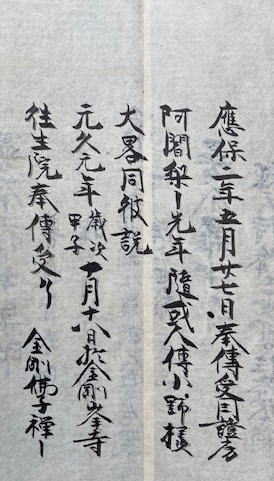 應保二年五月廿七日奉傳受同證房
阿闍梨ー先年隨或人傳小野様
大畧同彼説
元久元年歳次甲子十月十八日於金剛峯寺
往生院奉傳受了 金剛佛子禅ー